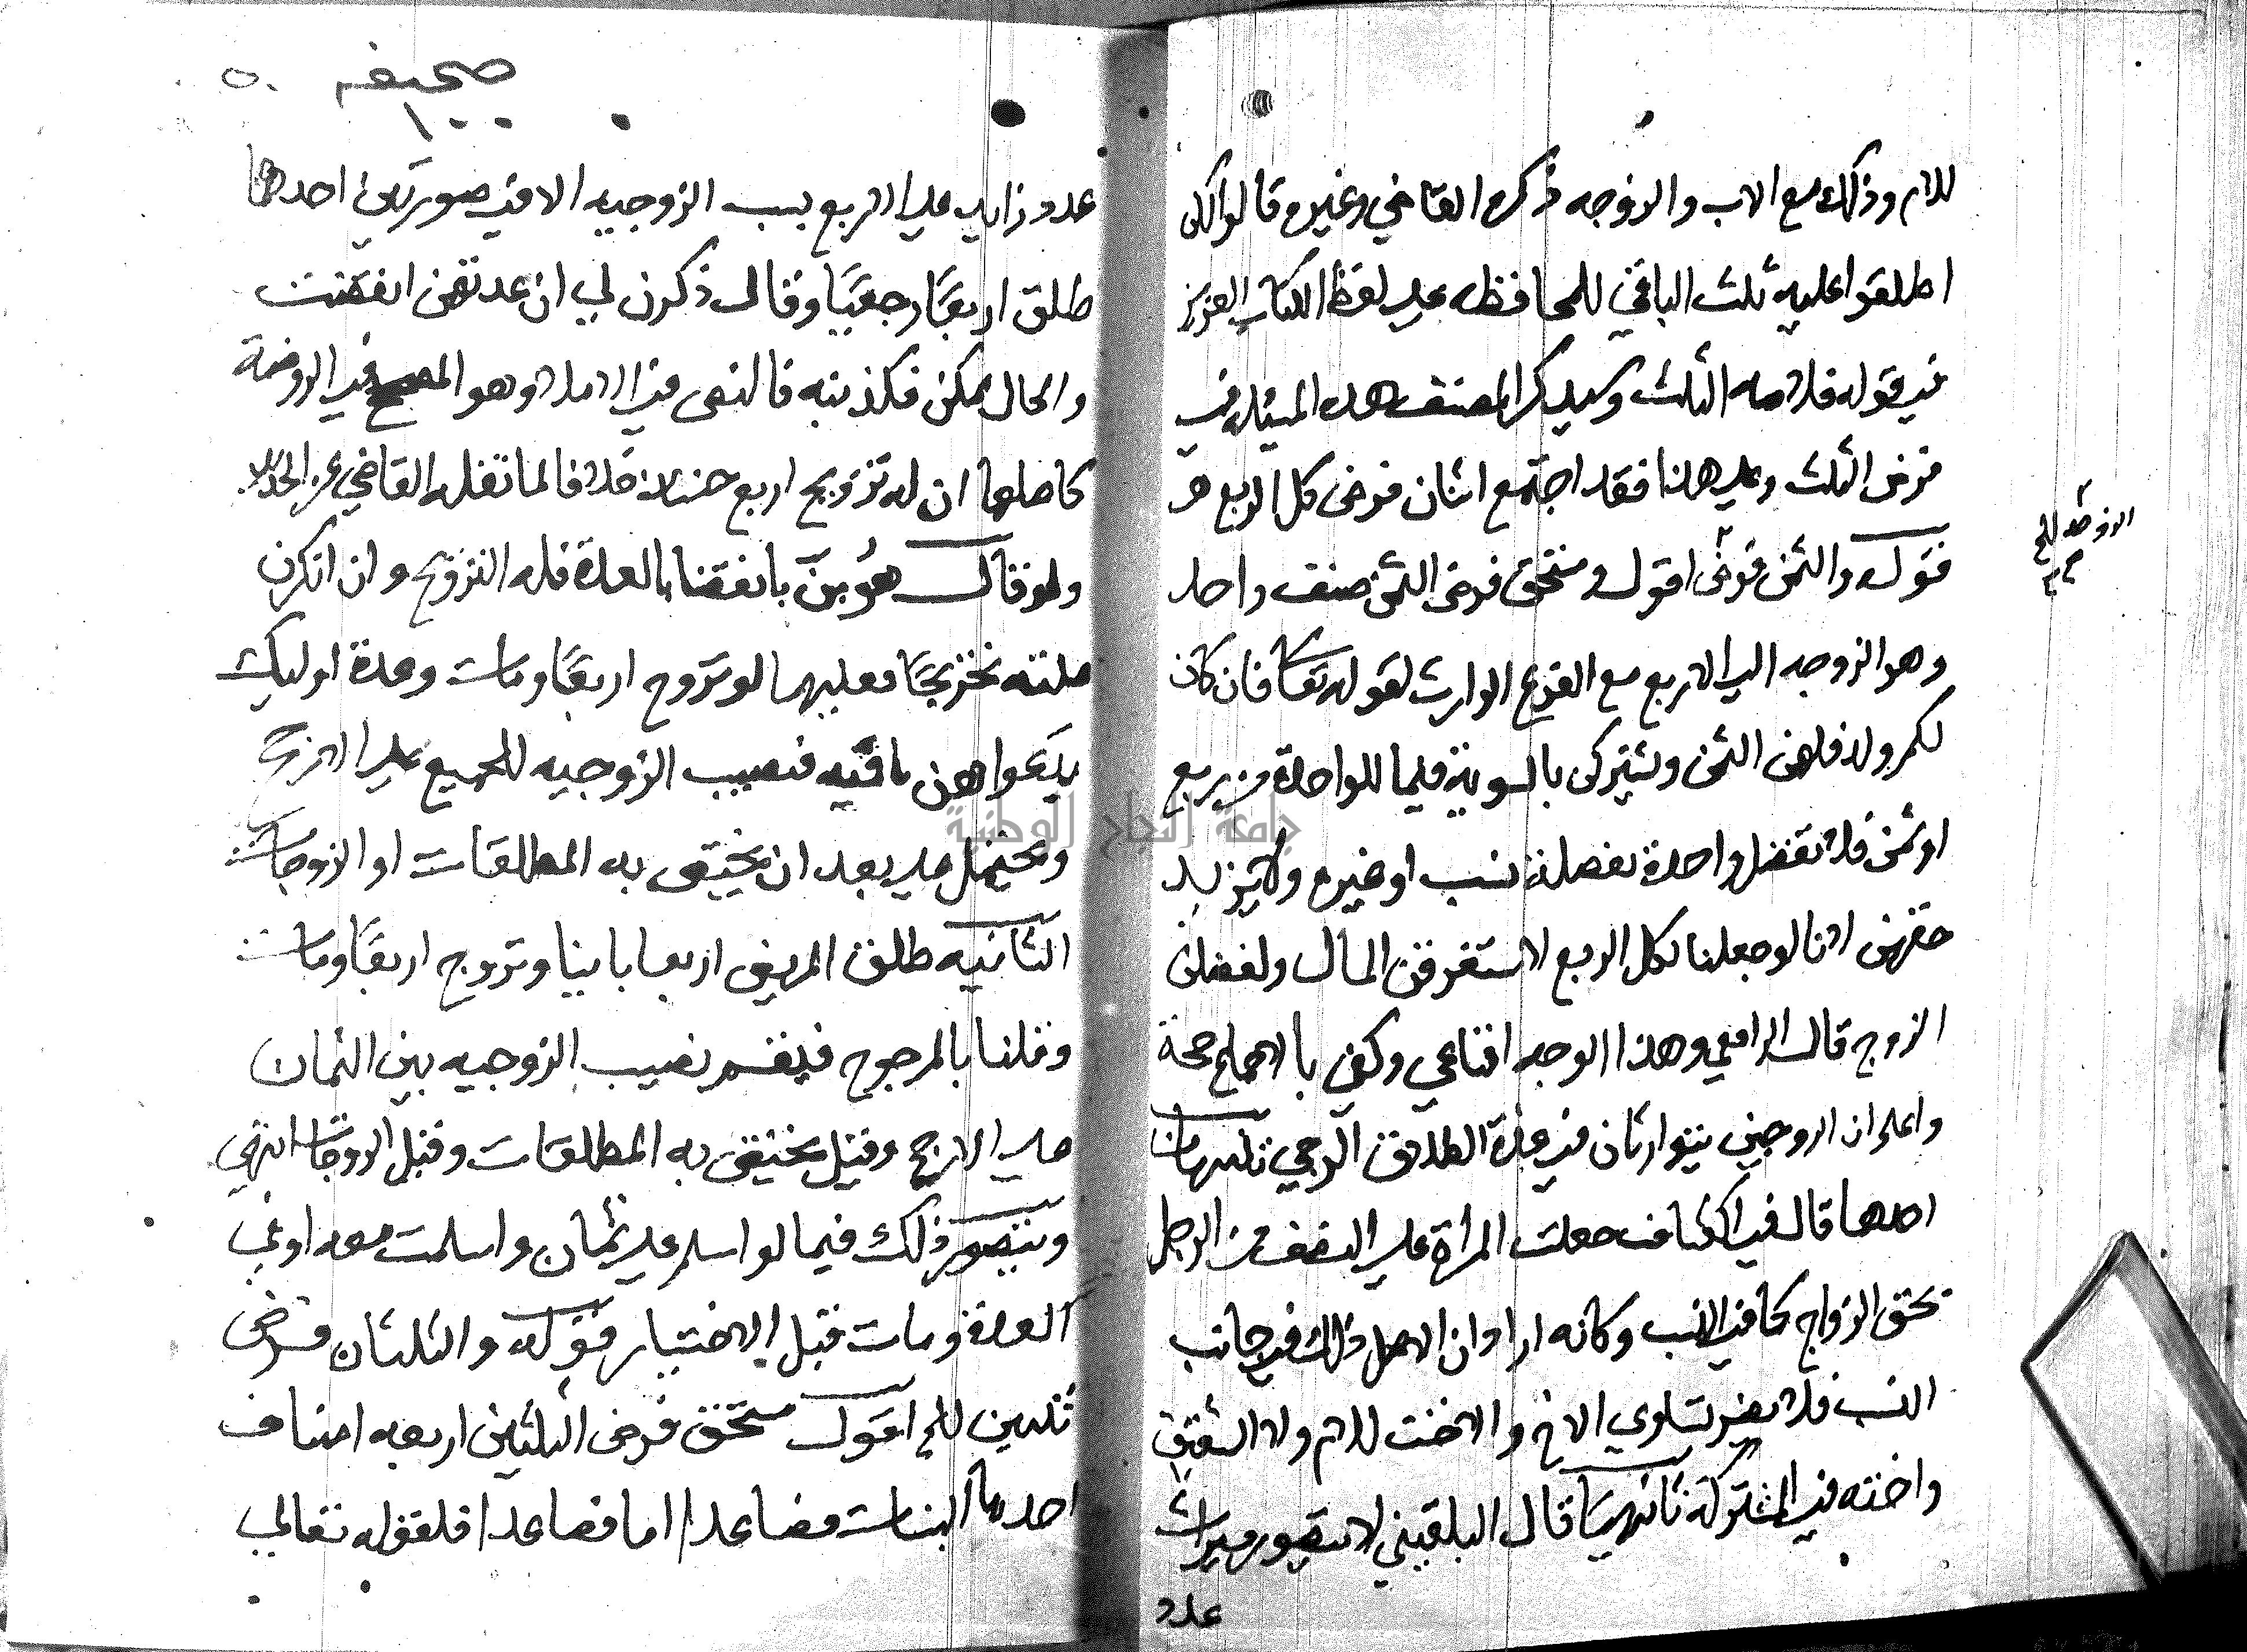 للام وذلك مع الاب والزوجه ذكره القاضي وغيره قالوا لكن
اطلقوا عليه ثلث الباقي للمحافظه علي لفظ الكتاب العزيز
في قوله فلامه الثلث وسيذكر المصنف هذه المسئله في
فرض الثلث وعلي هذا فقد اجتمع اثنان فرض كل الربع
قوله والثمن فرض اقول مستحق فرض الثمن صنف واحد
وهو الزوجه الي الاربع مع الفرع الوارث لقوله تعا فان كان
لكم ولد فلهن الثمن ويشتركن بالسوية فيما للواحدة من ربع
او ثمن فلا تفضل واحدة بفضلة نسب او غيره ولا يزيد
حقهن لانا لو جعلنا لكل الربع لاستغرقن المال ولفضلن
الزوج قال الرافعي وهذا الوجه اقناعي وكفى بالاجماع حجة
واعلم ان الزوجين يتوارثان في عدة الطلاق الرجعي تنبيهات
احدها قال في الكشاف جعلت المراة علي النصف من الرجل
بحق الزواج كما في النسب وكانه اراد ان الاصل ذلك في جانب
النسب فلا يضر تساوي الاخ والاخت للام ولا الشقيق
واخته في المشتركة ثانيها قال البلقيني لا يتصور ميراث
عدد
صحيفه
١٠٠
٥٠
عدد زايد علي الاربع بسبب الزوجيه الا في صورتين احدهما
طلق اربعا رجعيا وقال ذكرن لي ان عدتهن انقضت
والحال ممكن فكذبنه فالنص في الاملا وهو المصحح في الروضة
كاصلها ان له تزويج اربع خلافا لما نقله القاضي عن
ولو قال هو بن بانقضا العدة فله التزويج وان انكرن
تخريجا فعليهما لو تزوج اربعا ومات وعدة اوليك
بدعواهن باقيه فنصيب الزوجيه للجميع علي الارجح
ويحتمل علي بعد ان يختص به المطلقات او الزوجات
الثانيه طلق المريض اربعا باينا وتزوج اربعا ومات
وقلنا بالمرجوح فيقسم نصيب الزوجيه بين الثمان
علي الارجح وقيل يختص به المطلقات وقيل الزوجات انتهي
ويتصور ذلك فيما لو اسلم علي ثمان واسلمت معه او في
العدة ومات قبل الاختيار قوله والثلثان فرض
ثنتين الخ اقول مستحق فرض الثلثين اربعه اصناف
احدها البنات فصاعدا اما فصاعدا فلقوله تعالي